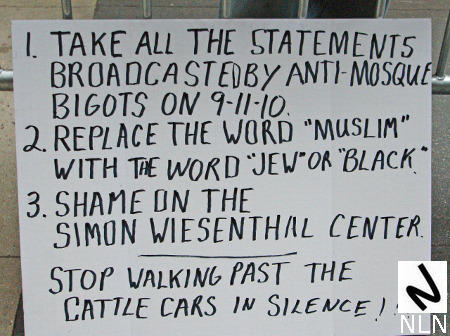 1. TAKE ALL THE STATEMENTS
BROADCASTED BY ANTI-MOSQUE
BIGOTS ON 9-11-10.
2. REPLACE THE WORD "MUSLIM"
WITH THE WORD "JEW" OR "BLACK."
3. SHAME ON THE
SIMON WIESENTHAL CENTER.
STOP WALKING PAST THE
CATTLE CARS IN SILENCE!!
N
NLN